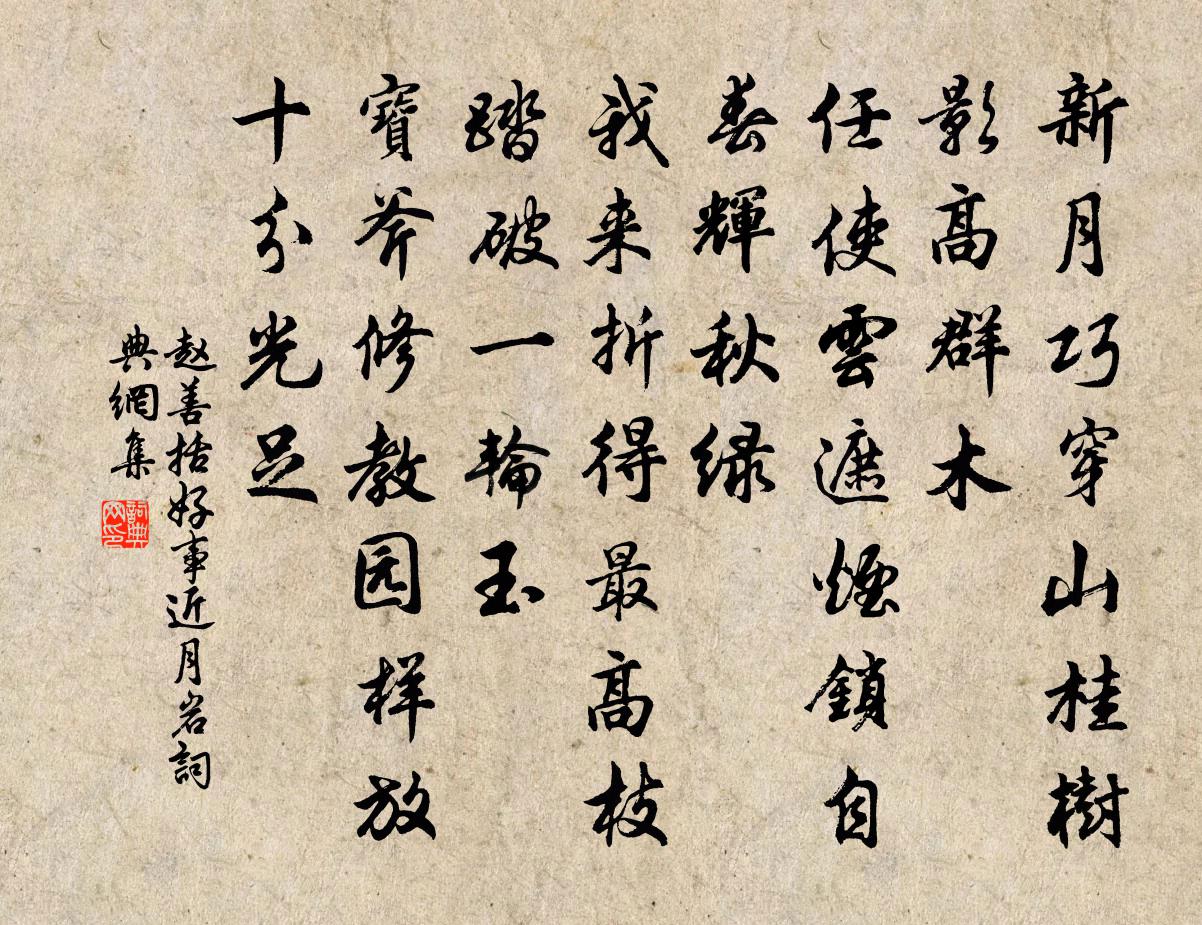 新月巧穿山桂樹
影高群木
任使雲遮煙鎖自
春輝秋绿
我来折得最高枝
踏破一輪玉
寶斧修教园样放
十分光足
赵善括好事近月岩詞
典網集
詞典网印